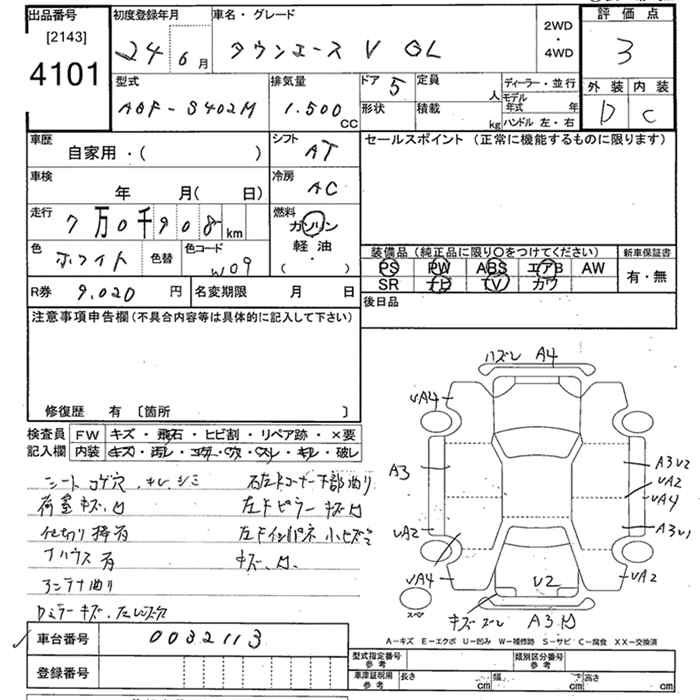 出品番号
[2143]
4101
初度登録年月
24 6月
車名・グレード
タウンエース V GL
2WD
・
4WD
評価点
3
外装 内装
D C
型式
ABF-S402M
排気量
1.500
CC
ドア 5
形状
定員
人
積載
kg
ディーラー・並行
モデル
年式 年
ハンドル 左・右
車歴
自家用・( )
シフト
AT
車検
年 月( 日)
冷房
AC
走行
7万0千908km
燃料
ガソリン
軽油
( ・ )
色
ホワイト
色替
色コード
W09
R券 9,020 円
名変期限 月 日
セールスポイント (正常に機能するものに限ります)
装備品(純正品に限り○をつけてください)
PS PW ABS エアB AW
SR ナビ TV カワ
新車保証書
有・無
後日品
注意事項申告欄(不具合内容等は具体的に記入して下さい)
修復歴 有 〔箇所 〕
検査員
記入欄
FW キズ・飛石・ヒビ割・リペア跡・×要
内装 キズ・汚レ・コゲ・穴・スレ・キレ・破レ
シートコゲ穴、キレ、シミ
荷室キズ、凹
仕切り棒有
アンテナ曲り
Dミラーキズ
右左ドコーナー下部曲り
左ドピラーキズ凹
キズ、凹、
ハズレ A4
UA4
A3
UA2
UA4
A3 U2
UA2
UA4
A3 U1
UA2
U2
キズ ズレ A3 凹
スペ
A-キズ E-エクボ U-凹み W-補修跡 S-サビ C-腐食 XX-交換済
車台番号 0032113
登録番号
型式指定番号
参考
類別区分番号
参考
車庫証明用
参考
長さ cm 幅 cm 高さ cm